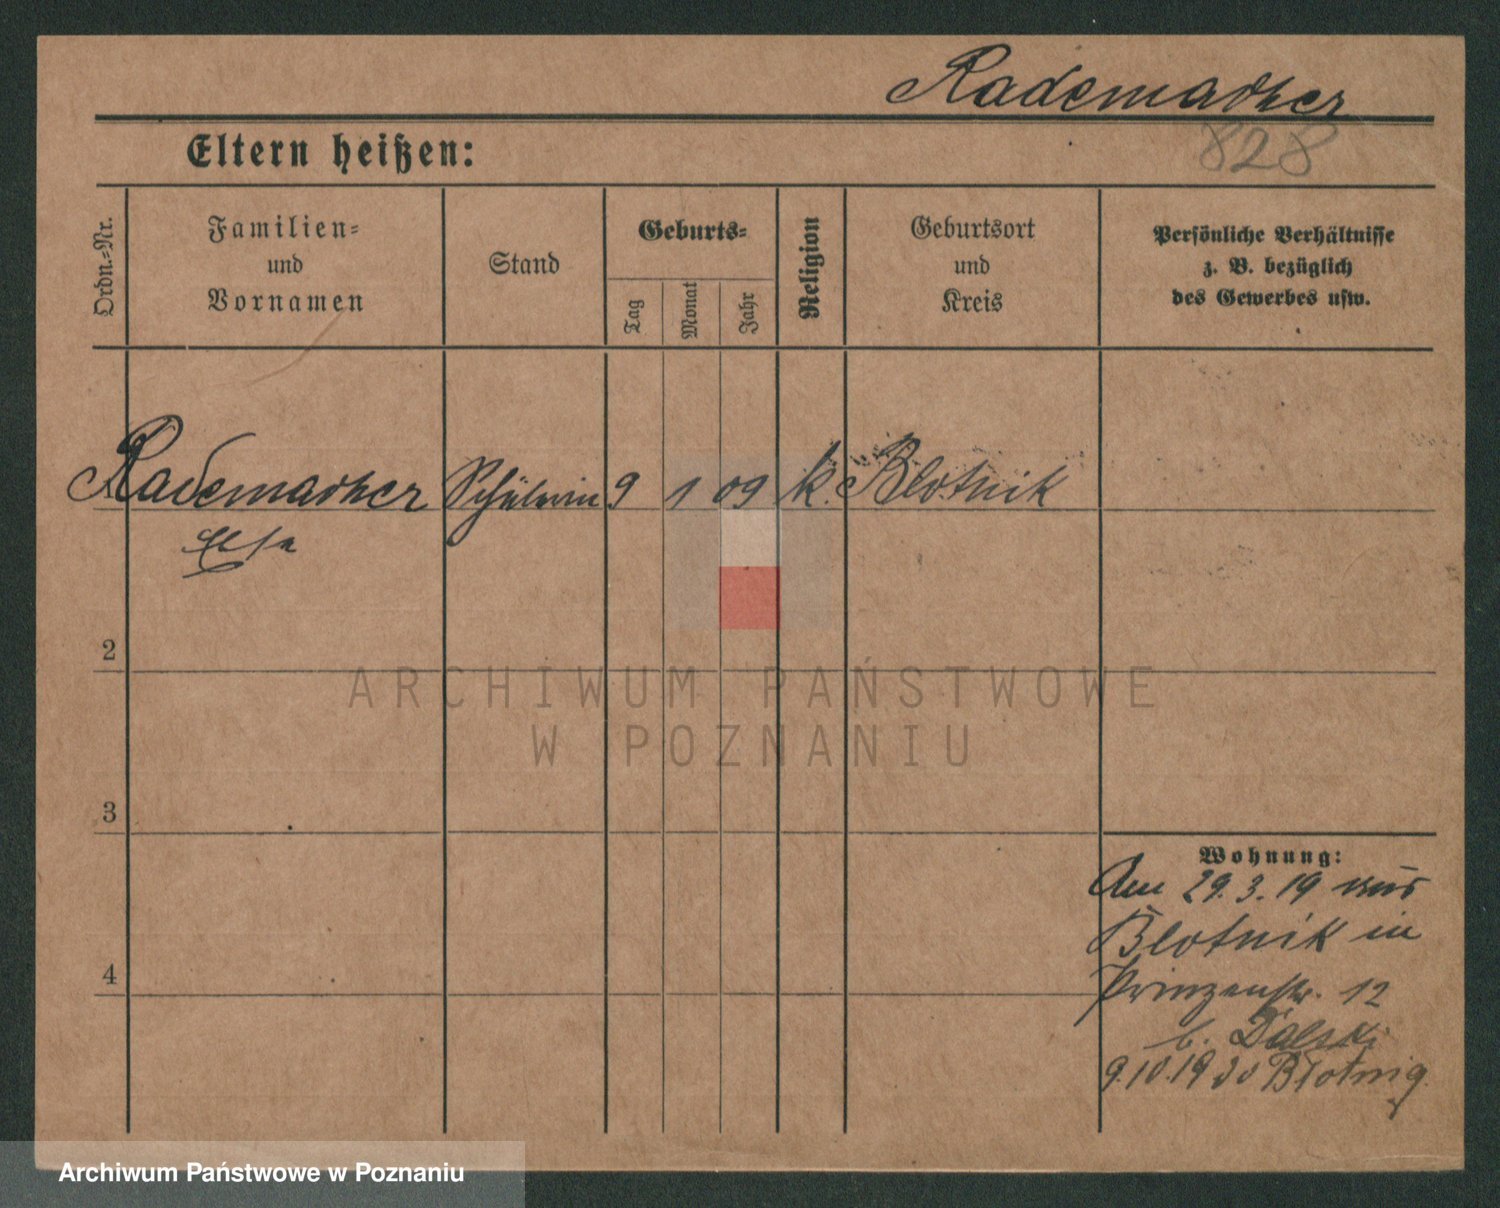 Rademacher
828
Eltern heißen:
Ordn.-Nr.
Familien-
und
Vornamen
Stand
Geburts-
Tag
Monat
Jahr
Religion
Geburtsort
und
Kreis
Persönliche Verhältnisse
z. B. bezüglich
des Gewerbes usw.
Rademacher Schülerin 9 1 09 k. Blotnik
Else
2
3
4
Wohnung:
Am 29.3.19 aus
Blotnik in
Prinzenstr. 12
b. Dalski
9.10.19 do Błotnig
ARCHIWUM PAŃSTWOWE
W POZNANIU
Archiwum Państwowe w Poznaniu